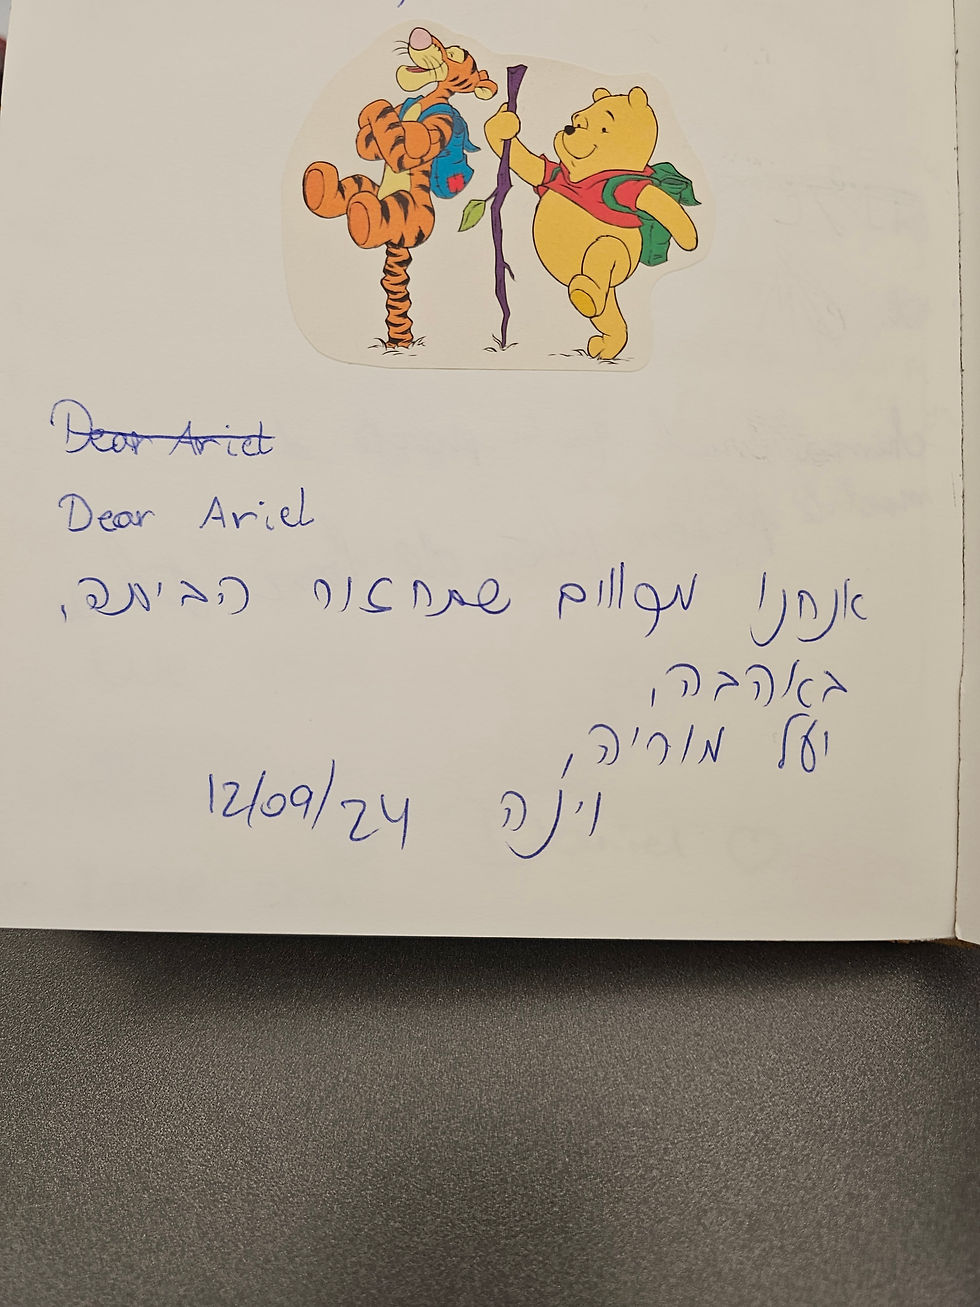 Dear Ariel
Dear Ariel
אנחנו מקווים שתחזור הביתה,
באהבה,
יעל מוריה,
וינה 12/09/24